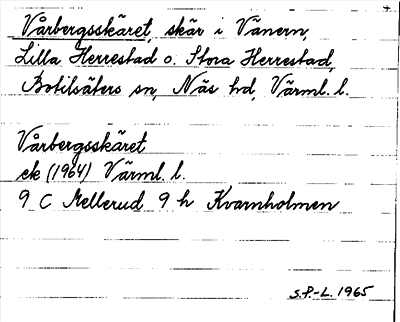 Vårbergsskäret, skär i Vänern,
Lilla Herrestad o. Stora Herrestad,
Botilsäters sn, Näs hd, Värml. l.
Vårbergsskäret
ek (1964) Värml. l.
9 C Mellerud 9 h Kvarnholmen
S.P.-L. 1965